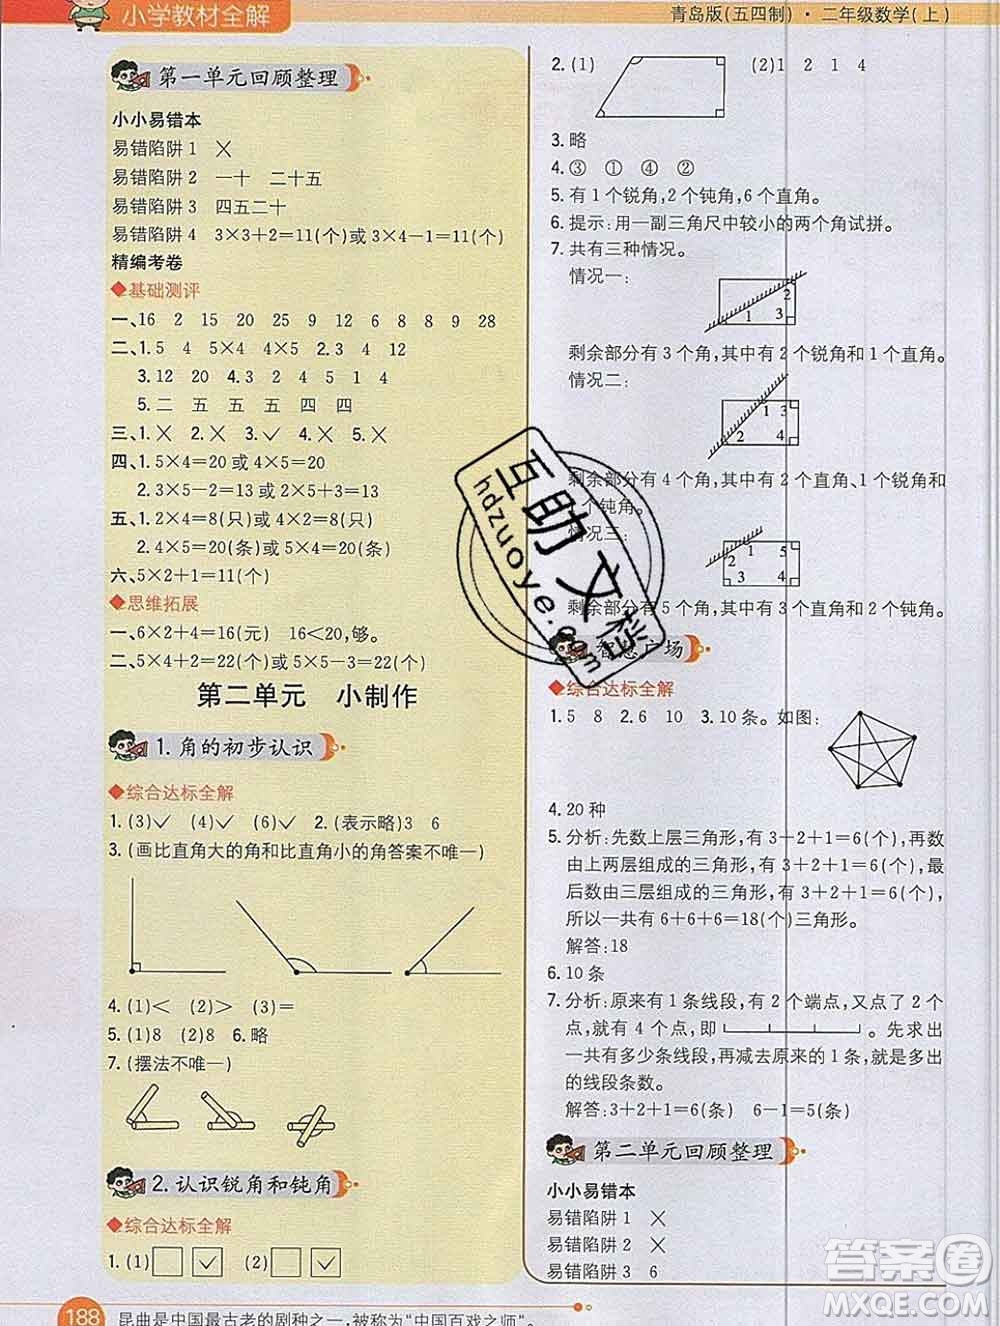 小学教材全解
青岛版(五四制)·二年级数学(上)
第一单元回顾整理
小小易错本
易错陷阱 1 ×
易错陷阱 2 一十 二十五
易错陷阱 3 四五二十
易错陷阱 4 3×3+2=11(个)或 3×4-1=11(个)
精编考卷
◆基础测评
一、16 2 15 20 25 9 6 3 8 9 28
二、1.5 4 5×4 4×5 2.3 4 12
3.12 20 4.3 2 4 5 1 4
5.二 五 五 五 四 四
三、1.× 2.× 3.✓ 4.× 5.×
四、1.5×4=20 或 4×5=20
2.3×5-2=13 或 3×4+1=13
五、1.2×4=8(只)或 4×2=8(只)
2.4×5=20(条)或 5×4=20(条)
六、5×2+1=11(个)
◆思维拓展
一、6×2+4=16(元) 16<20,够。
二、5×4+2=22(个)或 5×5-3=22(个)
第二单元 小制作
1.角的初步认识
◆综合达标全解
1.(3)✓ (4)✓ (6)✓ 2.(表示略)3 6
3.(画比直角大的角和比直角小的角答案不唯一)
4.(1)< (2)> (3)=
5.(1)8 (2)8 6.略
7.(摆法不唯一)
2.认识锐角和钝角
◆综合达标全解
1.(1) ✓ (2) ✓
2.(1) (2)1 2 1 4
3.略
4.③ ① ④ ②
5.有 1 个锐角,2 个钝角,6 个直角。
6.提示:用一副三角尺中较小的两个角试拼。
7.共有三种情况。
情况一:
2
1 3
剩余部分有 3 个角,其中有 2 个锐角和 1 个直角。
情况二:
1 3
2 4
剩余部分有 4 个角,其中有 2 个直角、1 个锐角和
个钝角。
情况三:
1 5
2
3 4
剩余部分有 5 个角,其中有 3 个直角和 2 个钝角。
智慧广场
◆综合达标全解
1.5 8 2.6 10 3.10 条。如图:
4.20 种
5.分析:先数上层三角形,有 3+2+1=6(个),再数
由上两层组成的三角形,有 3+2+1=6(个),最
后数由三层组成的三角形,有 3+2+1=6(个),
所以一共有 6+6+6=18(个)三角形。
解答:18
6.10 条
7.分析:原来有 1 条线段,有 2 个端点,又点了 2 个
点,就有 4 个点,即 。先求出
一共有多少条线段,再减去原来的 1 条,就是多出
的线段条数。
解答:3+2+1=6(条) 6-1=5(条)
第二单元回顾整理
小小易错本
易错陷阱 1 ×
易错陷阱 2 ×
易错陷阱 3 6
188
昆曲是中国最古老的剧种之一,被称为“中国百戏之师”。
互助文档
hdzuoye.com
答案圈
MXQE.COM